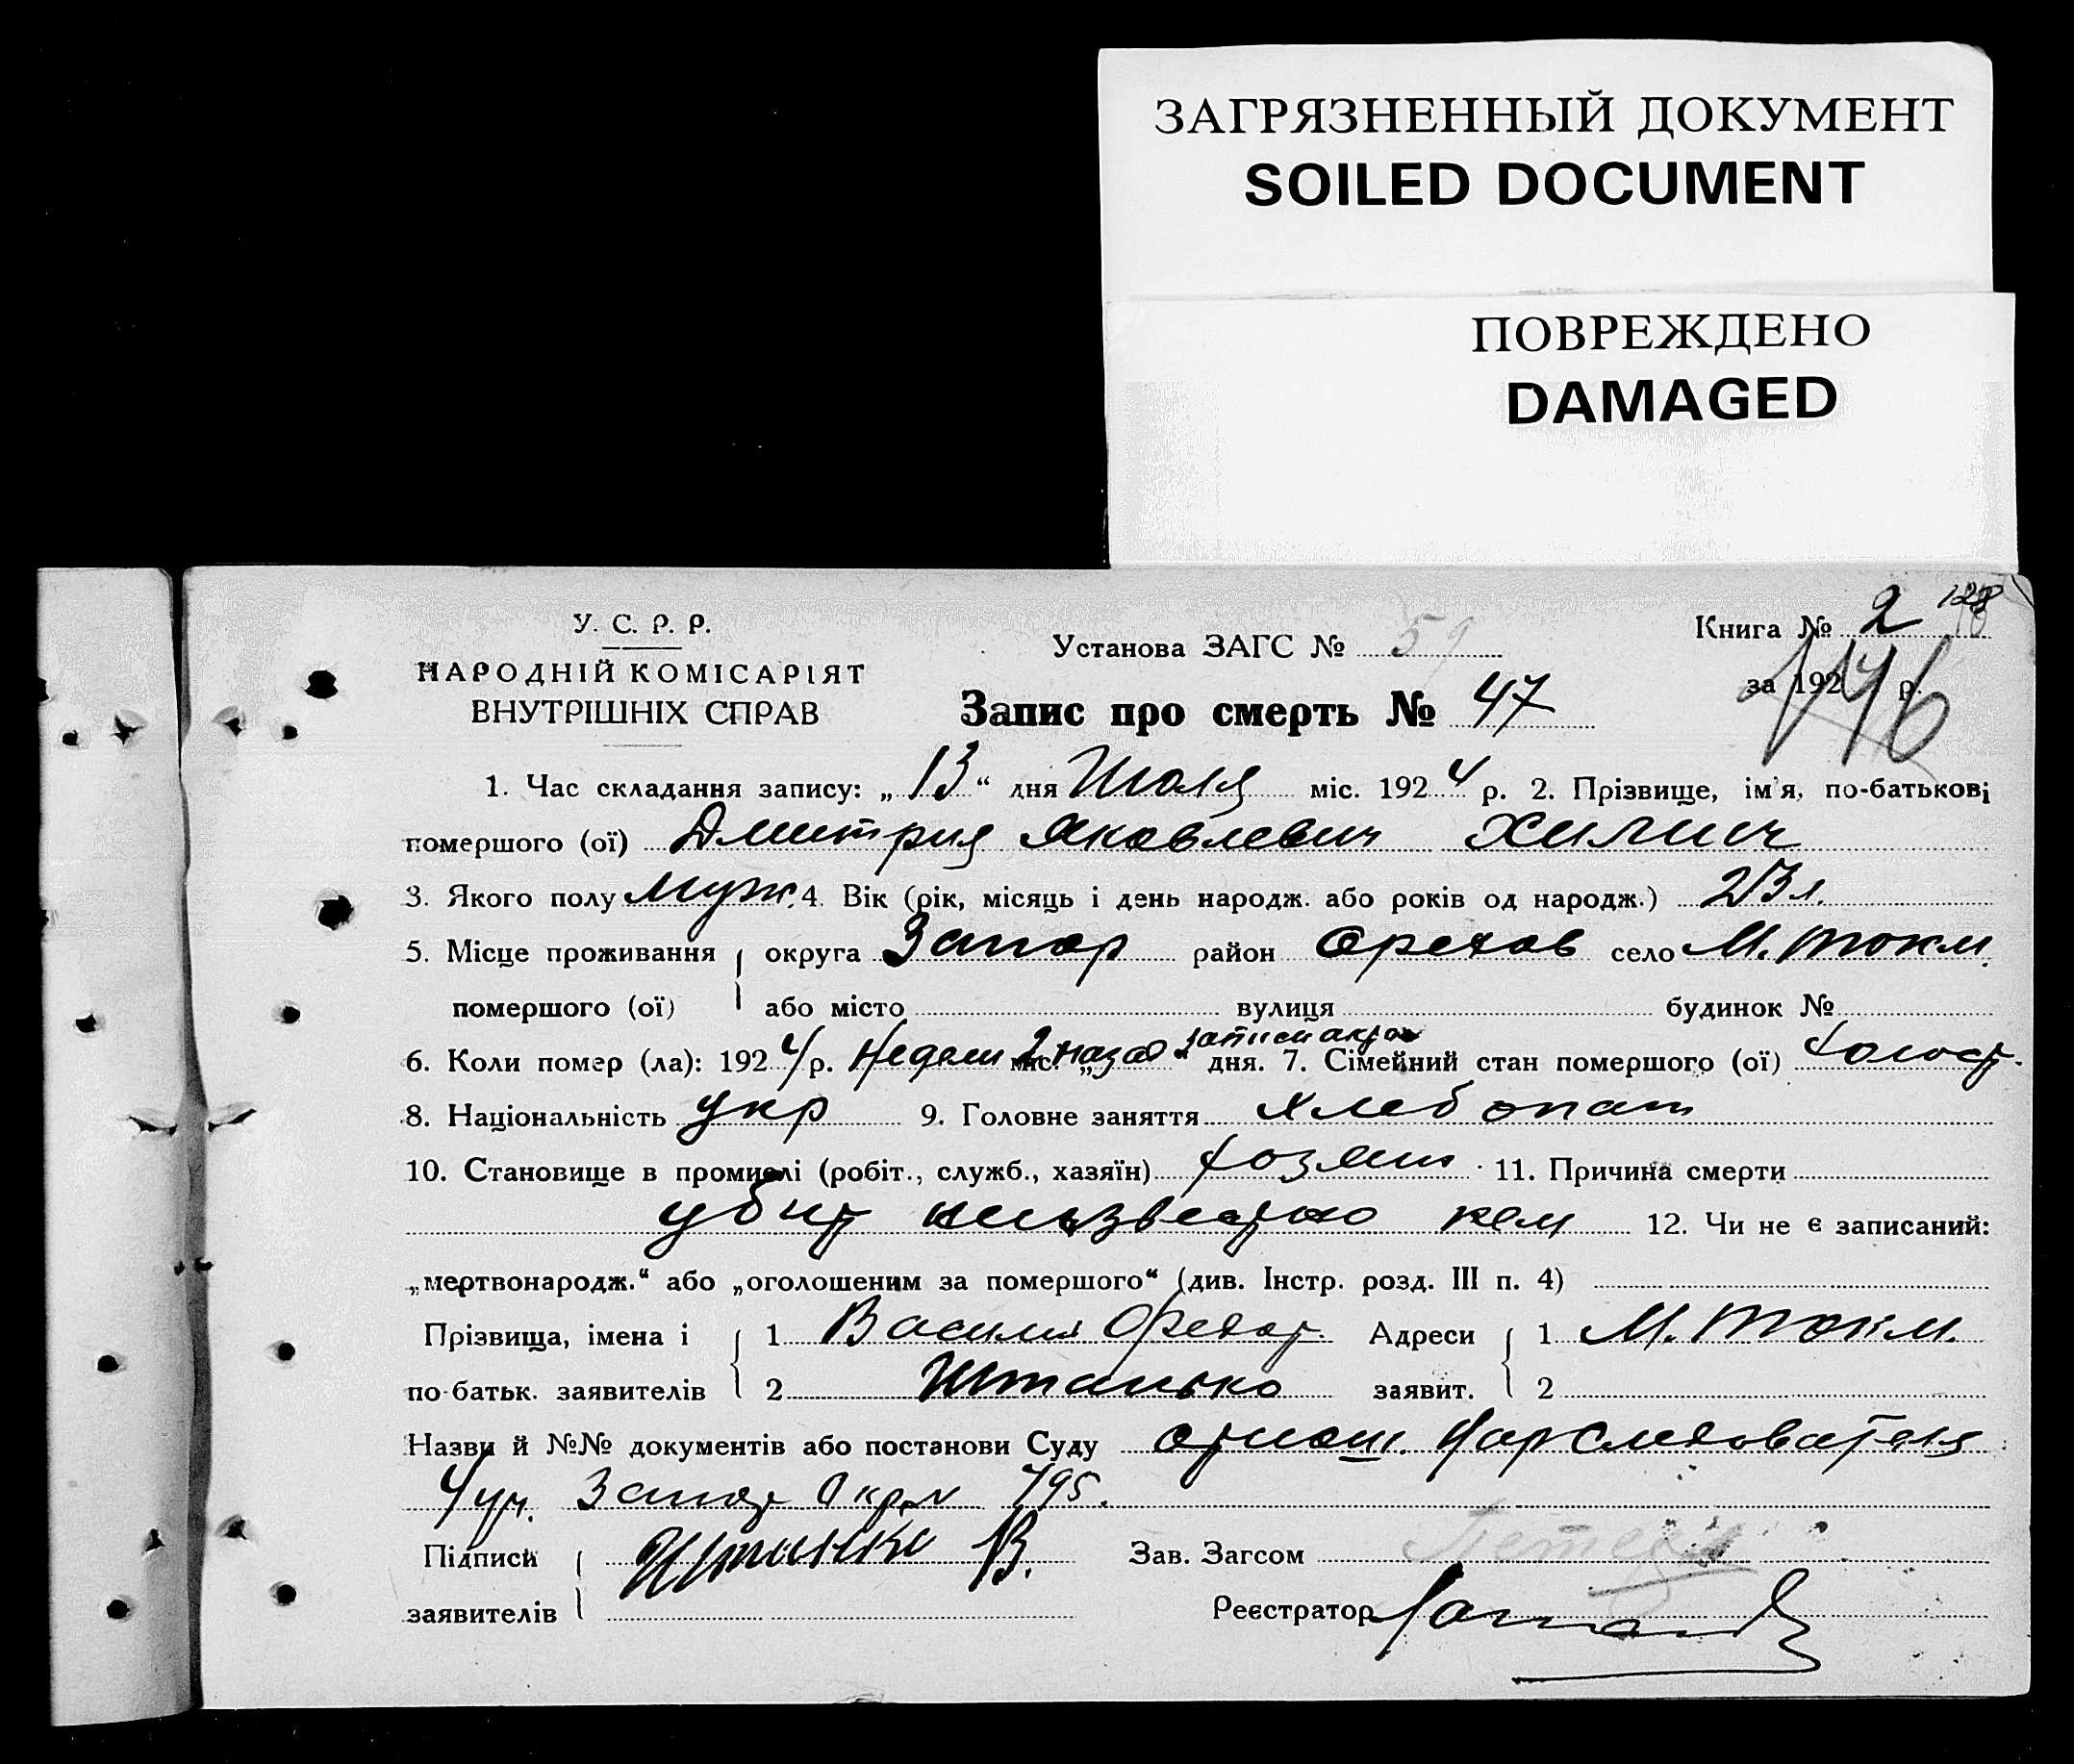 ЗАГРЯЗНЕННЫЙ ДОКУМЕНТ
SOILED DOCUMENT
ПОВРЕЖДЕНО
DAMAGED
128
У. С. Р. Р.
НАРОДНІЙ КОМІСАРІЯТ
ВНУТРІШНІХ СПРАВ
Установа ЗАГС № 59
Книга № 2
за 192 р.
146
Запис про смерть № 47
1. Час складання запису: „13“ дня Июля міс. 1924 р. 2. Прізвище, ім'я, по-батькові
помершого (ої) Дмитрия Яковлевич Хилич
3. Якого полу муж. 4. Вік (рік, місяць і день народж. або років од народж.) 23 л.
5. Місце проживання округа Запор район Орехов село М. Токм.
помершого (ої) або місто вулиця будинок №
6. Коли помер (ла): 1924 р. Недели 2 назад міс. „ “ дня. 7. Сімейний стан помершого (ої) Холост.
8. Національність укр 9. Головне заняття хлебопаш
10. Становище в промислі (робіт., служб., хазяїн) хозяин 11. Причина смерти
убит неизвестно кем 12. Чи не є записаний:
„мертвонародж.“ або „оголошеним за помершого“ (див. Інстр. розд. III п. 4)
Прізвища, імена і 1 Василий Адреси 1 М. Токм.
по-батьк. заявителів 2 Штанько заявит. 2
Назви й №№ документів або постанови Суду отнош. Нарследователя
4 уч. Запор Окр. 795.
Підписи Штанько В. Зав. Загсом
заявителів Реєстратор